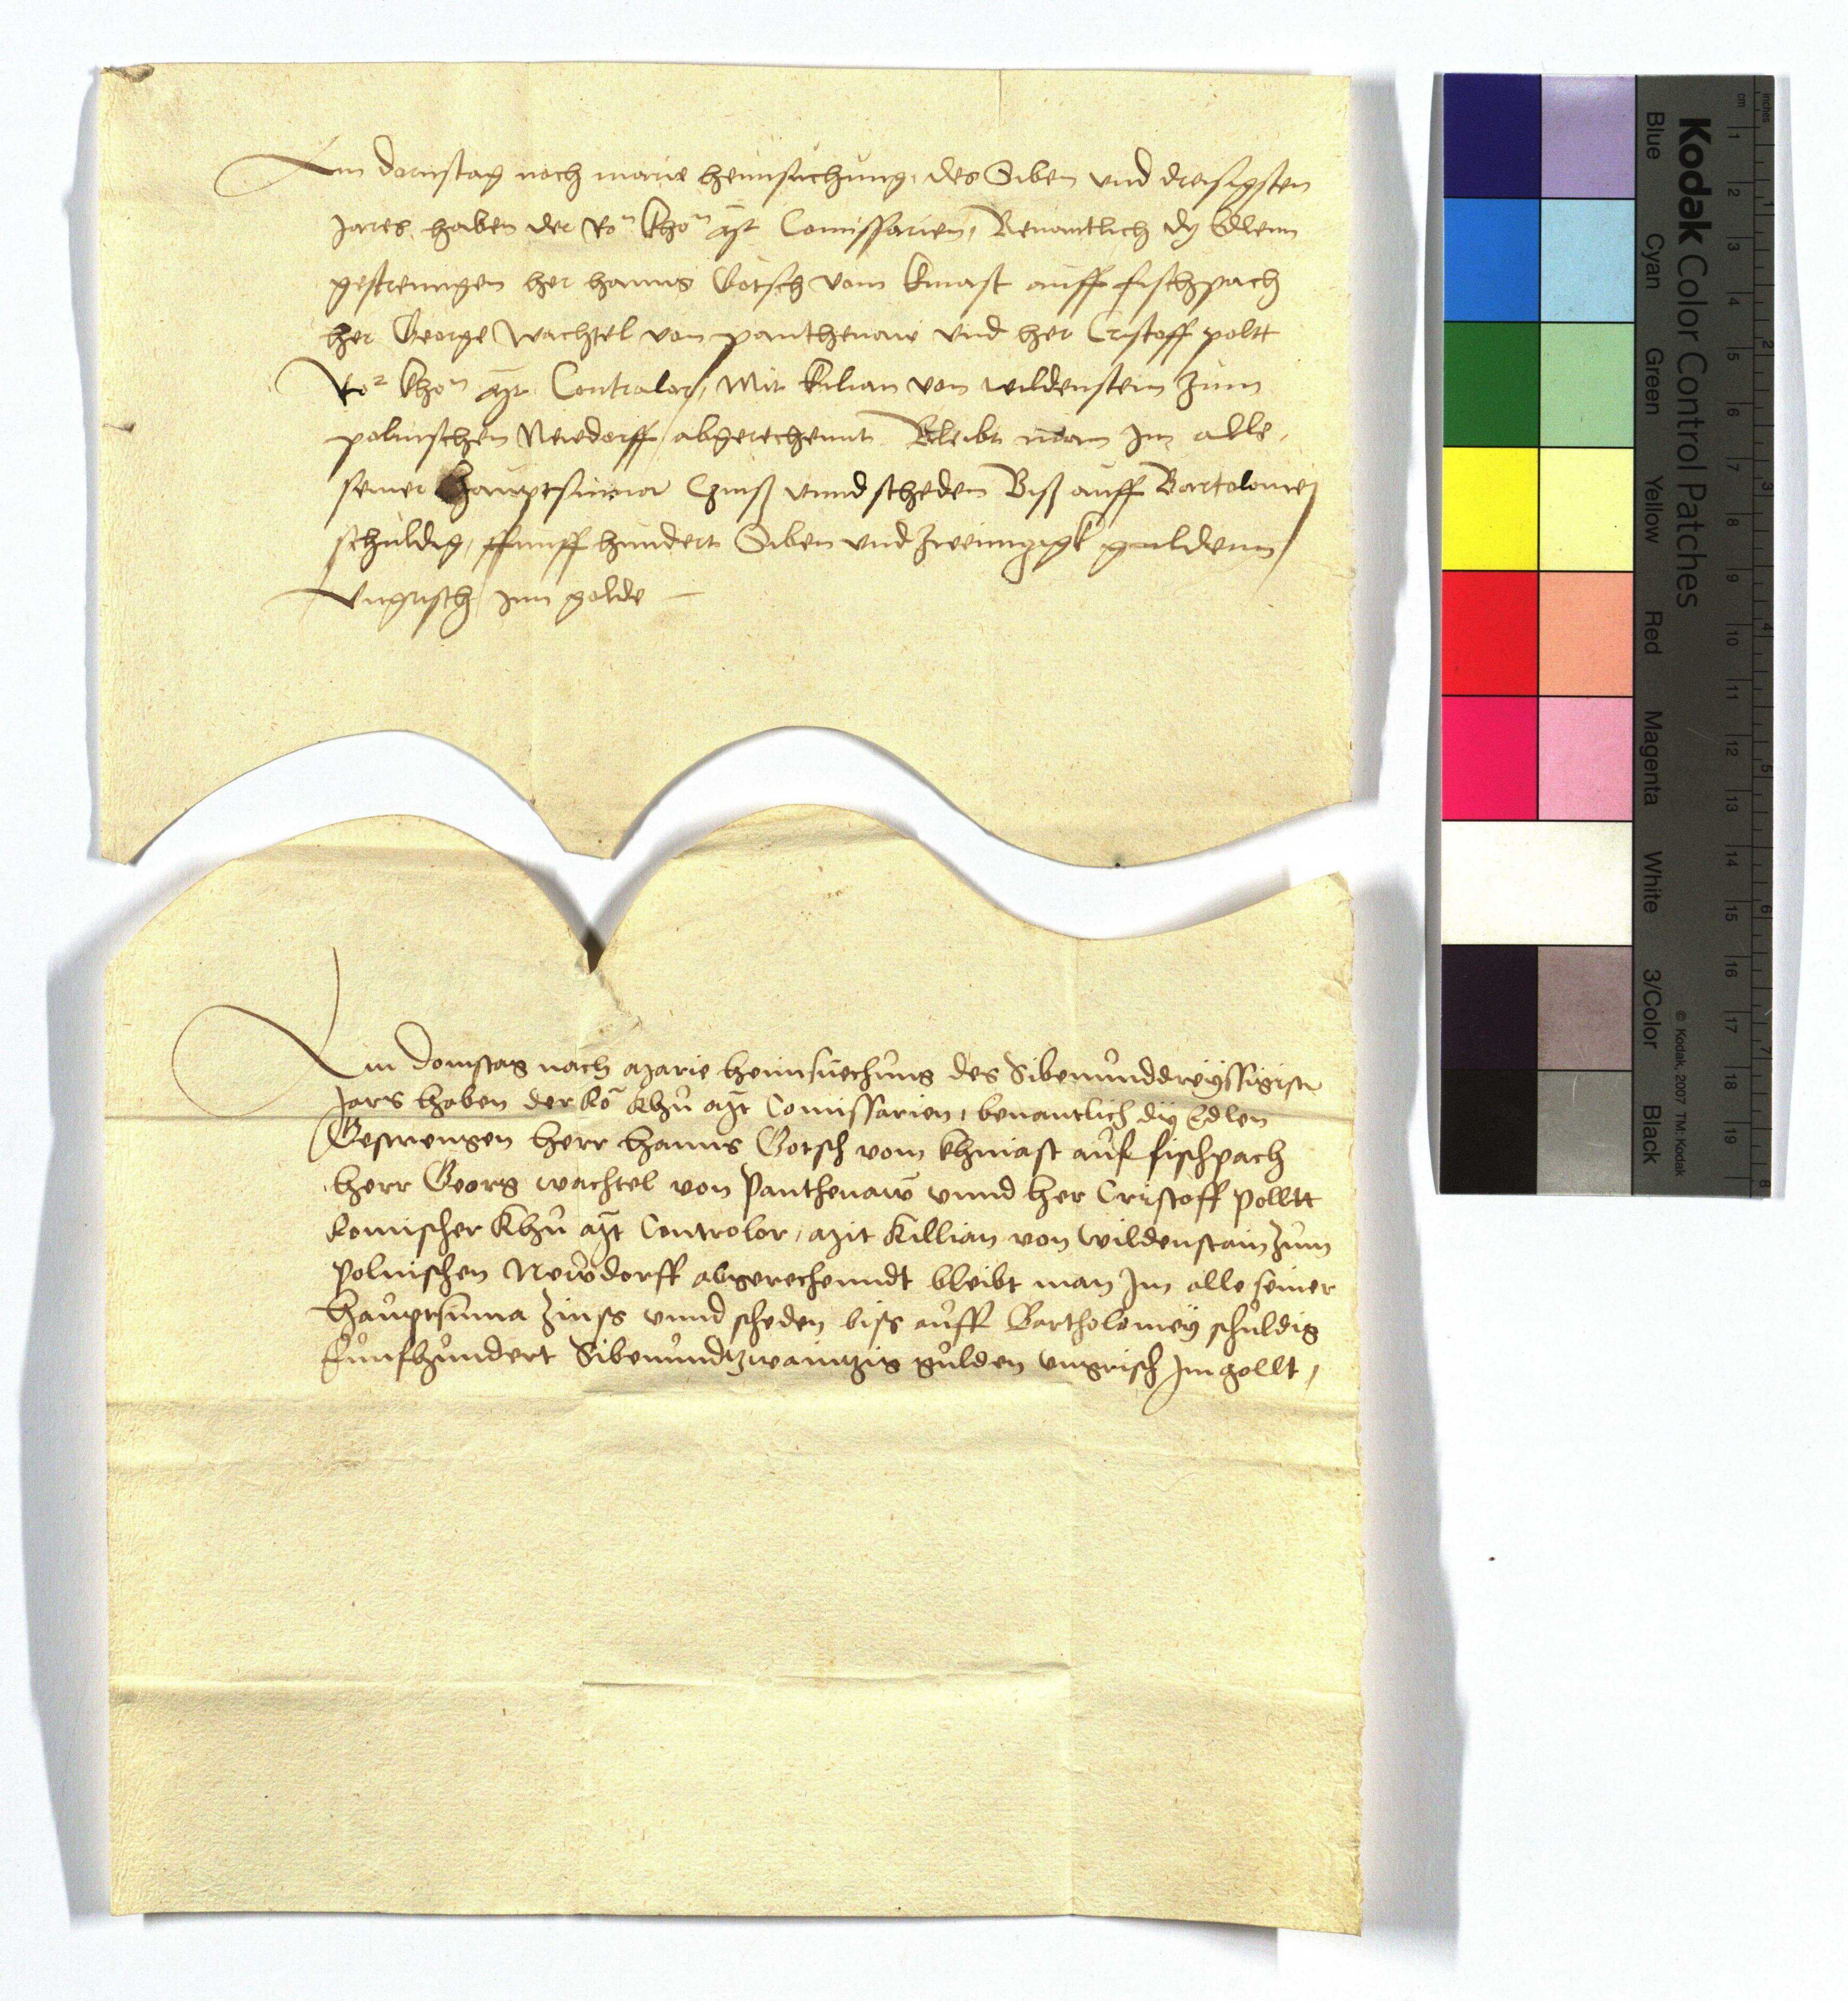 Am dornstag noch marie heimsuchung, des Siben und dreisigsten
Jares, haben der Ron khon Mt Comissarien, Benantlich dy Edlenn
gestrenngen her hanns Gotsch vom kinast auff fischpach
her George Wachtel von panthenaw vnd her Cristoff poltt
Ror khon Mt Contralor, Mit kilian von wildenstein zum
polnischen Newdorff abgerechennt Bleibt man Jm alle,
seiner Hauptsumma Czinß vnnd scheden Biß auff Bartolomej
schuldig, ffunff hundert Siben vnd zwennzigk guldenn
Vngrisch Jnn golde
Am Donnstag nach Marie heimsuechung des Sibenunddreyssigistn
Jars haben der Ro Khu Mt Comissarien, benantlich dy Edlen
Gestrengen herr hanns Gotsch vom khinast auf fischpach
herr Georg wachtel von Panthenaw vnnd her Cristoff Polltt
Romischer Khu Mt Controlor, Mit Killian von wildenstain zum
Polnischen Newdorff abgerechenndt bleibt man Jm alle seiner
hauptsuma Zinss vnnd scheden biss auff Bartholomey schuldig
funfhundert Sibenundtzwaintzig gulden vngrisch Jm gollt,
Kodak Color Control Patches
Blue Cyan Green Yellow Red Magenta White 3/Color Black
© Kodak, 2007 TM: Kodak
cm 1 2 3 4 5 6 7 8 9 10 11 12 13 14 15 16 17 18 19
inches 1 2 3 4 5 6 7 8